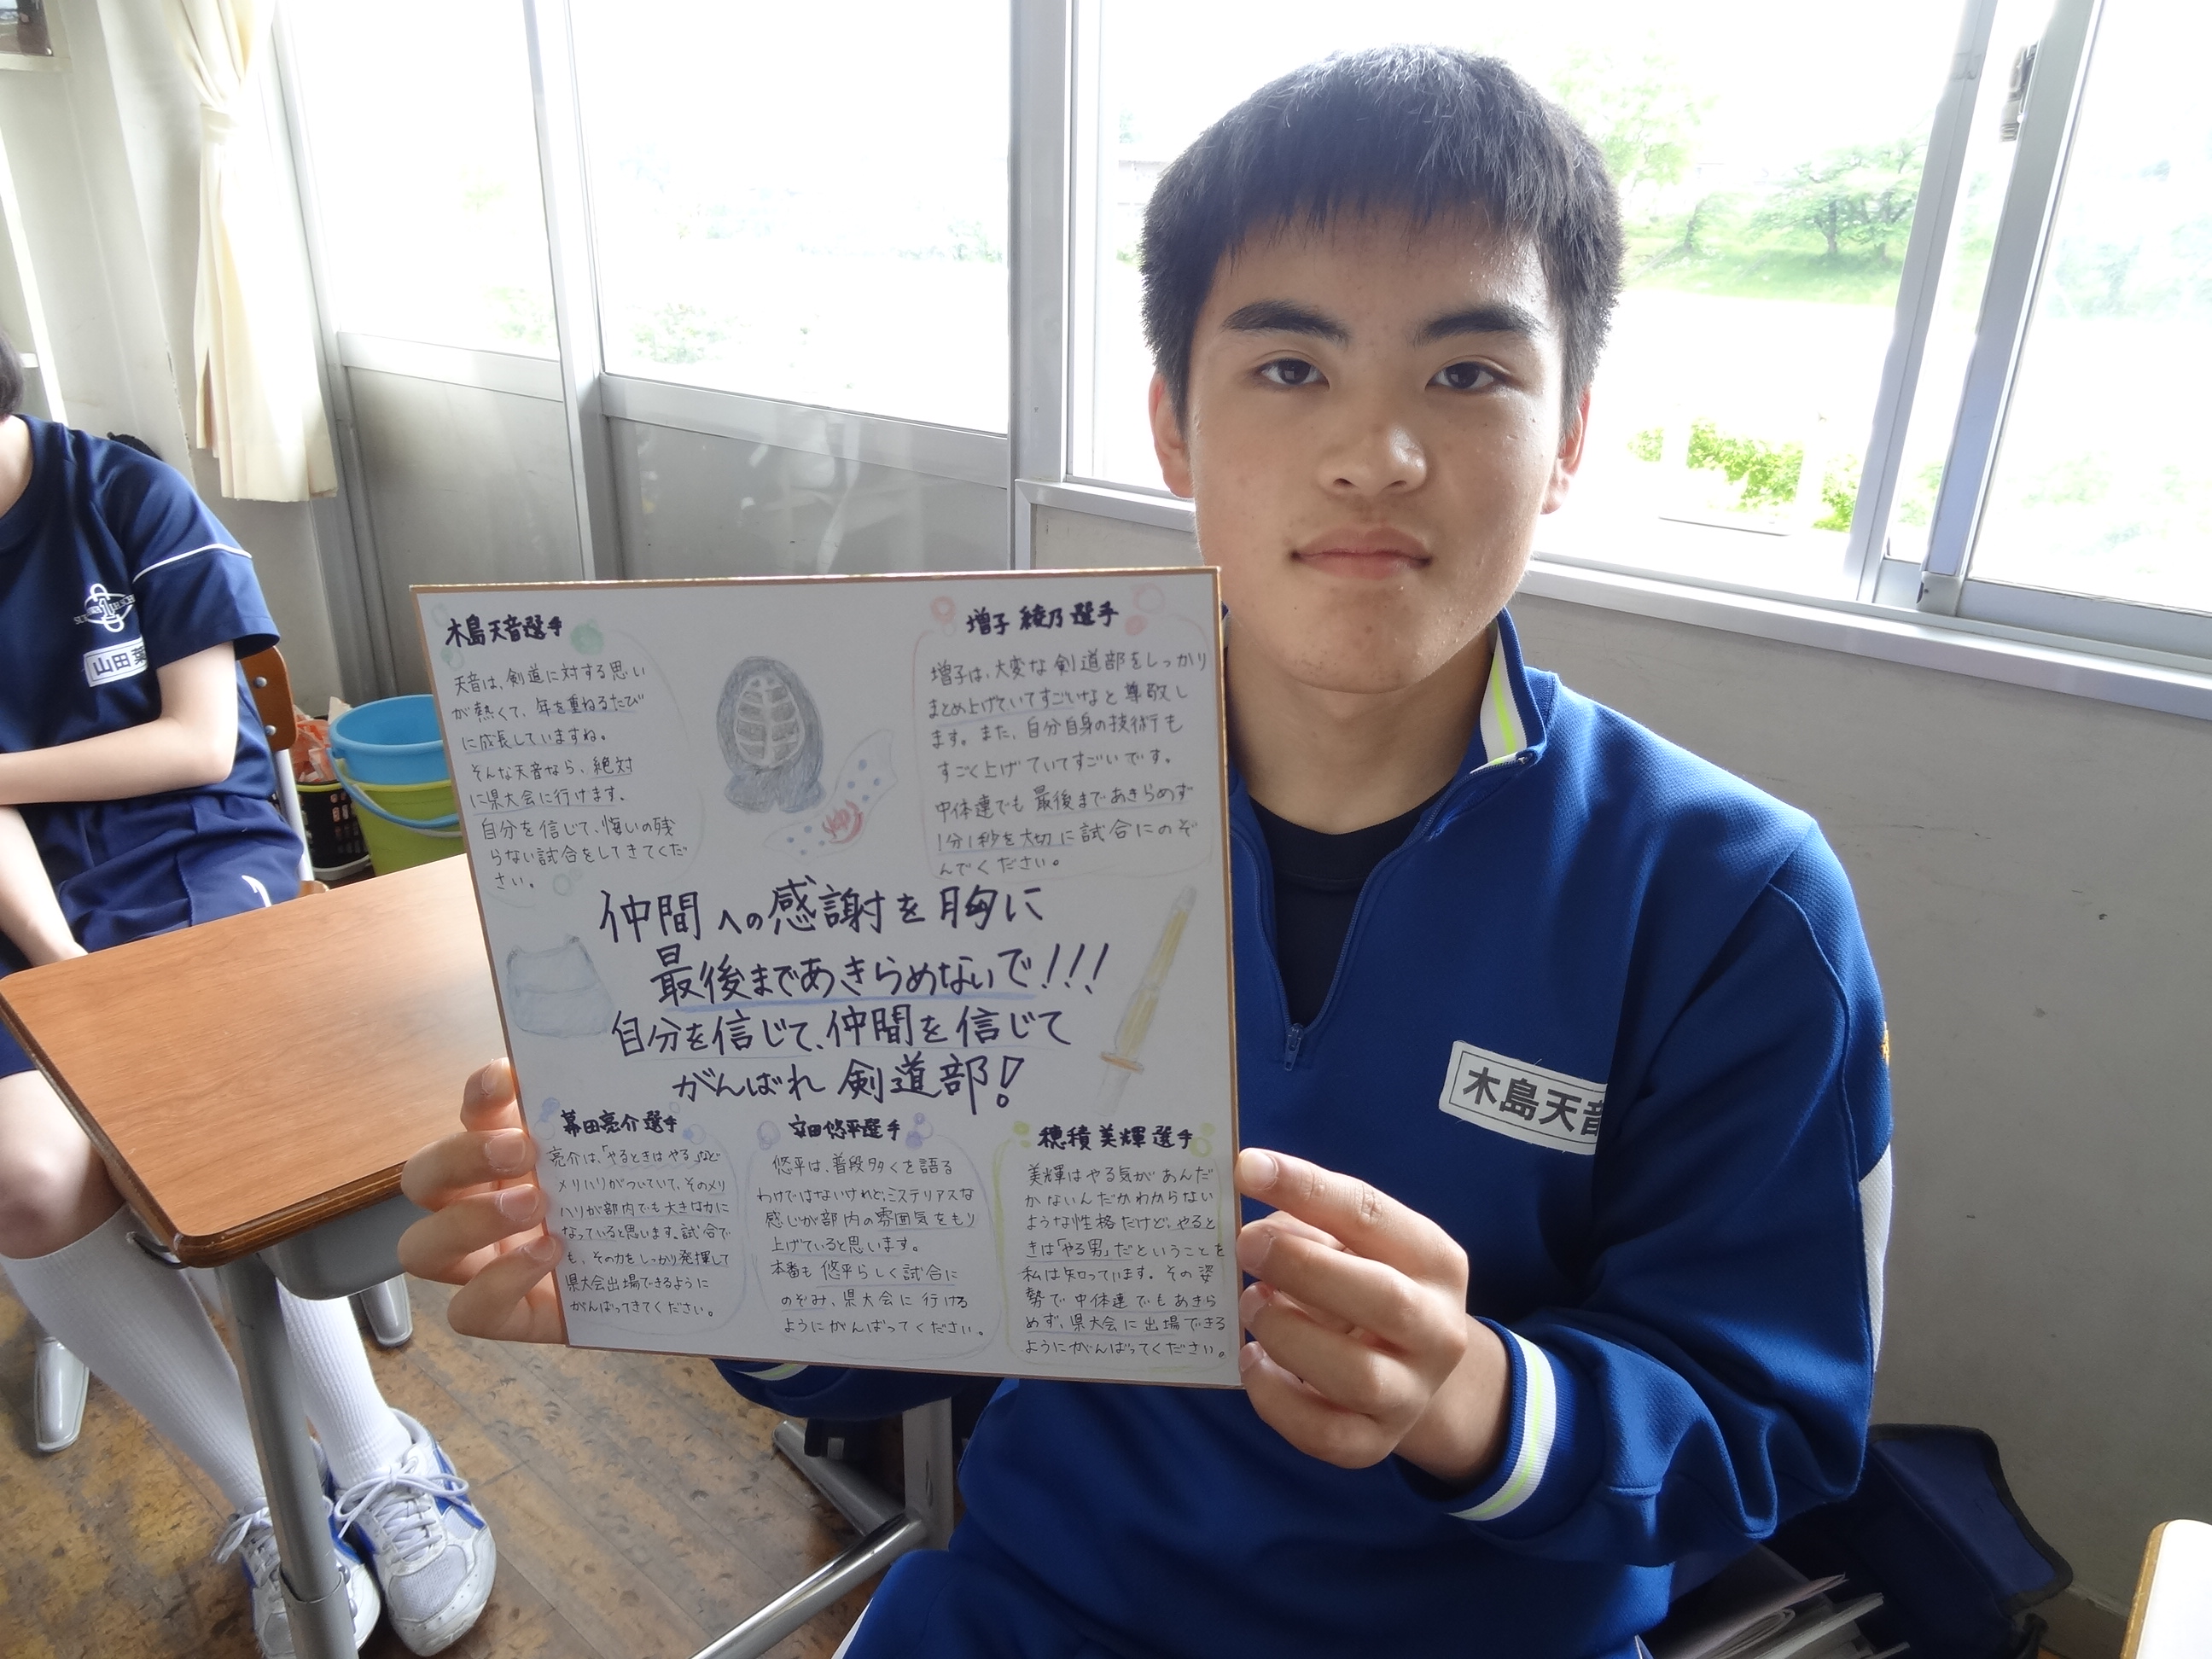 木島天音選手
天音は、剣道に対する思い
が熱くて、年を重ねるたび
に成長していますね。
そんな天音なら、絶対
に県大会に行けます。
自分を信じて、悔いの残
らない試合をしてきてくだ
さい。
増子綾乃選手
増子は、大変な剣道部をしっかり
まとめ上げていてすごいなと尊敬し
ます。また、自分自身の技術も
すごく上げていてすごいです。
中体連でも最後まであきらめず
1分1秒を大切に試合にのぞ
んでください。
仲間への感謝を胸に
最後まであきらめないで!!!
自分を信じて、仲間を信じて
がんばれ剣道部!
幕田亮介選手
亮介は、「やるときはやる」など
メリハリがついていて、そのメリ
ハリが部内でも大きな力に
なっていると思います。試合で
も、その力をしっかり発揮して
県大会出場できるように
がんばってきてください。
安田悠平選手
悠平は、普段多くを語る
わけではないけれど、ミステリアスな
感じが部内の雰囲気をもり
上げていると思います。
本番も悠平らしく試合に
のぞみ、県大会に行ける
ようにがんばってください。
穂積美輝選手
美輝はやる気があんだ
かないんだかわからない
ような性格だけど、やると
きは「やる男」だということを
私は知っています。その姿
勢で中体連でもあきら
めず、県大会に出場できる
ようにがんばってください。
木島天音
山田葉